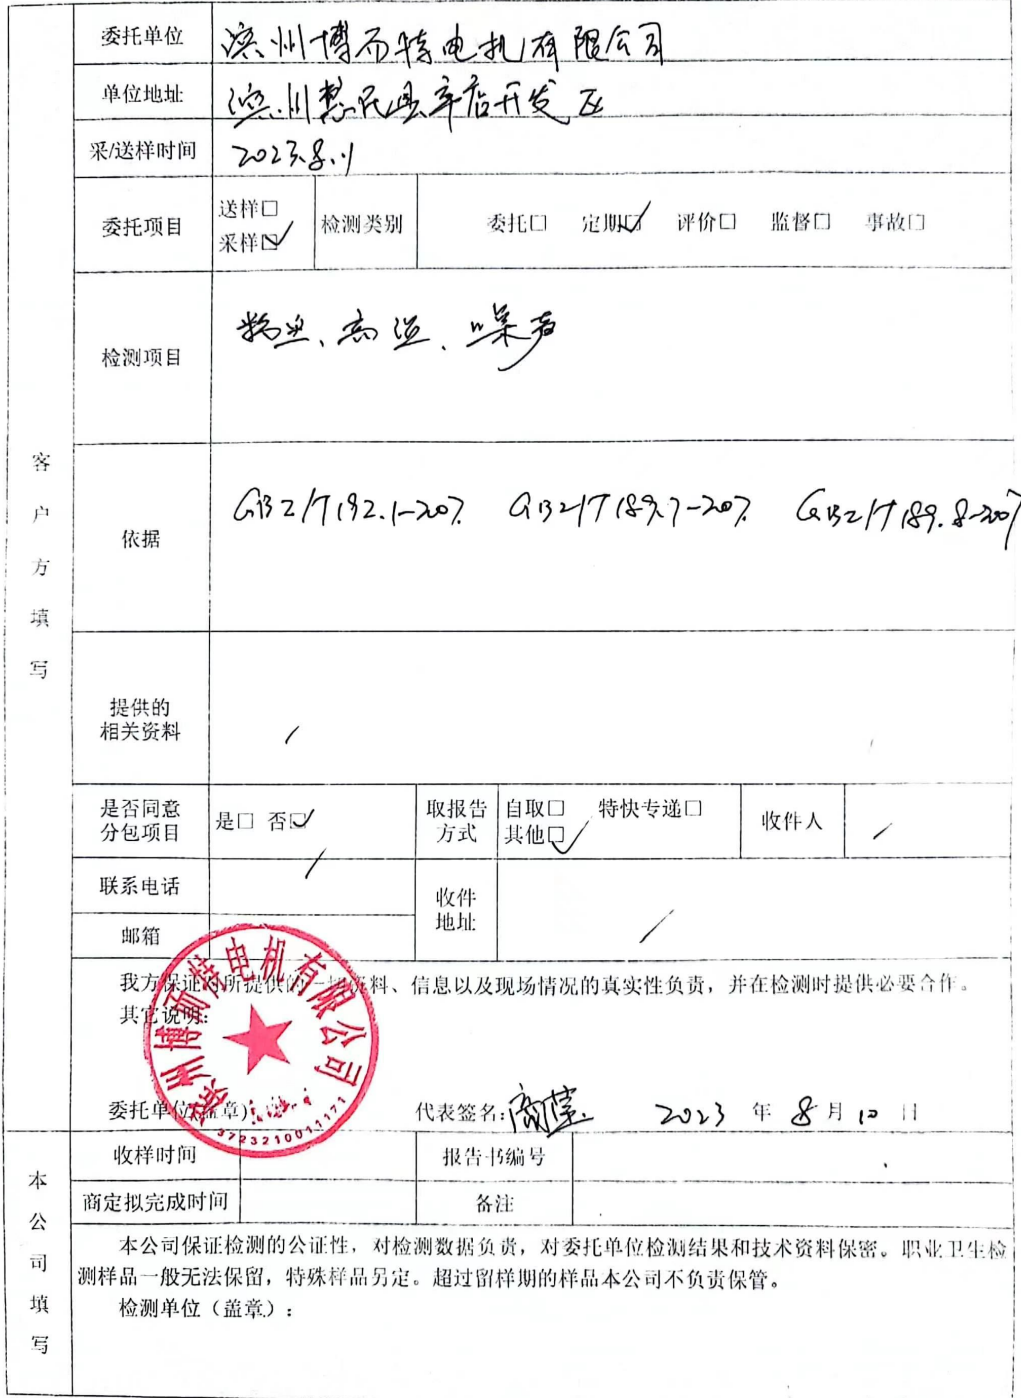 委托单位 滨州博而特电机有限公司
单位地址 滨州惠民县辛店开发区
采/送样时间 2023.8.11
委托项目 送样□ 采样☑ 检测类别 委托□ 定期☑ 评价□ 监督□ 事故□
检测项目 粉尘、高温、噪声
客户方填写
依据 GBZ/T192.1-2007. GBZ/T189.7-2007. GBZ/T189.8-2007
提供的
相关资料 /
是否同意
分包项目 是□ 否☑ 取报告
方式 自取□ 特快专递□
其他☑ 收件人 /
联系电话 / 收件
地址 /
邮箱
我方保证对所提供的一切资料、信息以及现场情况的真实性负责，并在检测时提供必要合作。
其它说明:
滨州博而特电机有限公司
3723210011171
委托单位(盖章): 代表签名: 2023 年 8 月 10 日
本公司填写
收样时间 报告书编号
商定拟完成时间 备注
本公司保证检测的公证性，对检测数据负责，对委托单位检测结果和技术资料保密。职业卫生检
测样品一般无法保留，特殊样品另定。超过留样期的样品本公司不负责保管。
检测单位（盖章）: